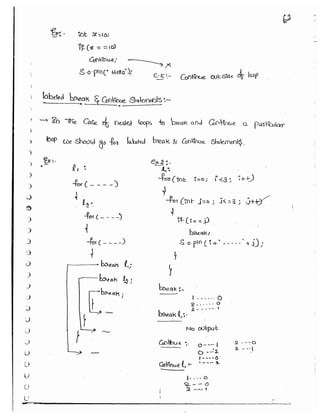 62
Ex:- int x=10;
if(x == 10)
Continue;
S.o.pln("Hello");
C.E:- Continue outside of loop
labeled break & Continue Statements :-
→ In the Case of nested loops to break and Continue a particular
loop we should go for labeled break & Continue Statements.
Ex:-
l1 :
for ( - - - - )
{
l2 :
for ( - - - - )
{
for ( - - - - )
{
break l1;
break l2;
break;
ex 2 :-
l1:
for (int i=0; i<3; i++)
{
for (int j=0; j<3; j++)
{
if (i == j)
break;
S.o.pln (i+"-----"+j);
}
}
break :-
1 ------ 0
2 ------ 0
2 ------ 1
break l1:-
No output
Continue :-
0 ---- 1
0 --- 2
1 ---- 0
1 ---- 2
2 --- 0
2 --- 1
Continue l1 :-
1 ---- 0
2 --- 0
2 --- 1